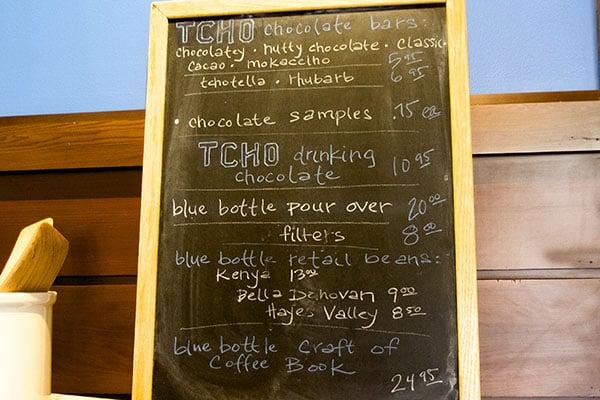 TCHO chocolate bars:
chocolatey · nutty chocolate · classic
cacao · mokaccino 5 95
tchotella · rhubarb 6 95
· chocolate samples .75 ea
TCHO drinking
chocolate 10 95
blue bottle pour over 20 00
filters 8 00
blue bottle retail beans:
Kenya 13 00
Bella Donovan 9 00
Hayes Valley 8 50
blue bottle craft of
Coffee Book
24 95